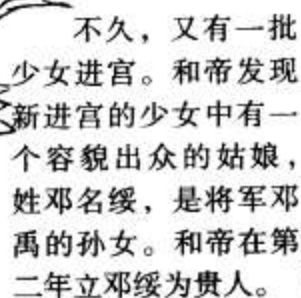 不久，又有一批
少女进宫。和帝发现
新进宫的少女中有一
个容貌出众的姑娘，
姓邓名绥，是将军邓
禹的孙女。和帝在第
二年立邓绥为贵人。